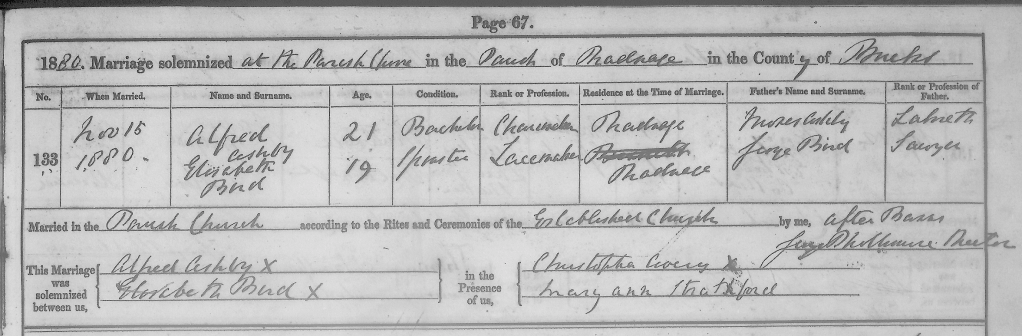 Page 67.
1880. Marriage solemnized at the Parish Church in the Parish of Radnage in the County of Bucks
No. When Married. Name and Surname. Age. Condition. Rank or Profession. Residence at the Time of Marriage. Father's Name and Surname. Rank or Profession of Father.
133 Nov 15 1880. Alfred Ashby 21 Bachelor Chairmaker Radnage Moses Ashby
Elisabeth Bird 19 Spinster Lacemaker Radnage George Bird Sawyer
Married in the Parish Church according to the Rites and Ceremonies of the Established Church by me, after Banns
Rector
This Marriage was solemnized between us, Alfred Ashby X
Elisabeth Bird X
in the Presence of us, Christopher Avery X
Mary Ann Stratford